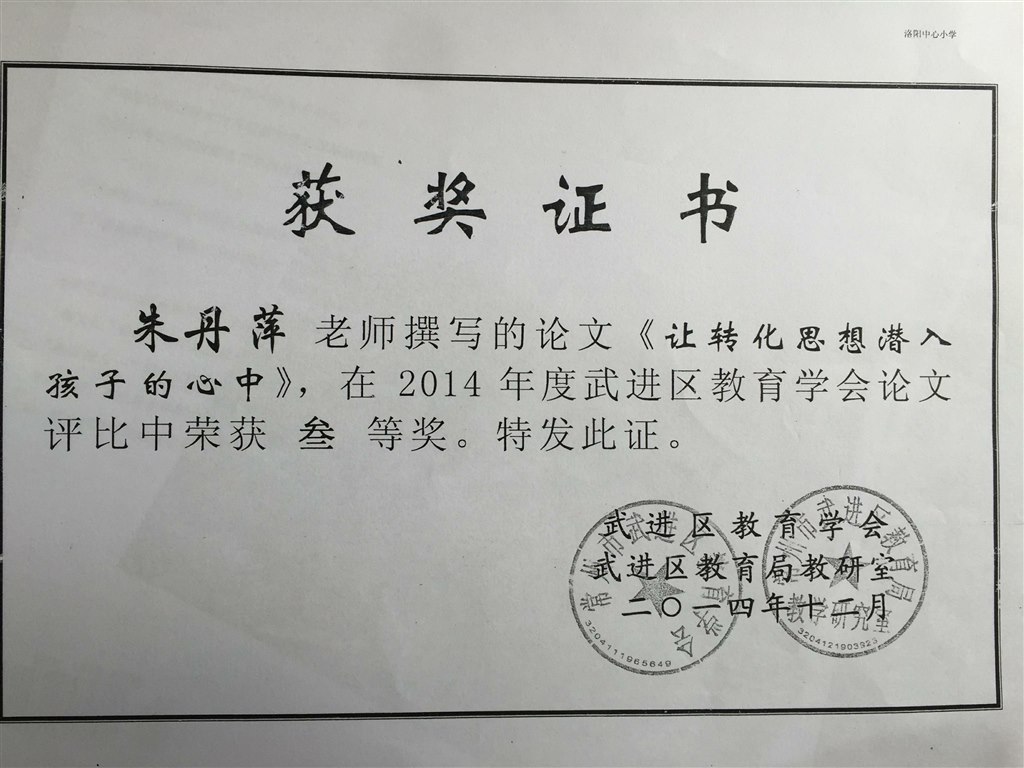 洛阳中心小学
获奖证书
朱丹萍 老师撰写的论文《让转化思想潜入
孩子的心中》，在 2014 年度武进区教育学会论文
评比中荣获 叁 等奖。特发此证。
武进区教育学会
武进区教育局教研室
二〇一四年十二月
常州市武进区教育学会
3204111965649
常州市武进区教育局
教学研究室
3204121903923